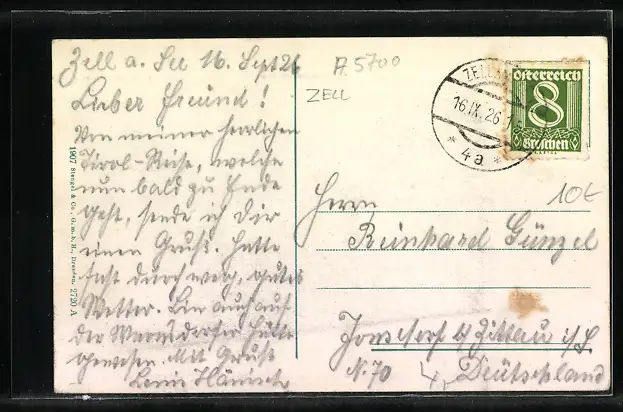 Zell a. See 16. Sept 26
Lieber Freund!
Von meiner herrlichen
Tirol-Reise, welche
nun bald zu Ende
geht, sende ich Dir
einen Gruß. Hatte
fast durchweg gutes
Wetter. Bin auch auf
der Warnsdorfer Hütte
gewesen. Mit Gruß
Hänisch
1907 Stengel & Co., G.m.b.H., Dresden. 2720 A
A 5700
ZELL
ZELL
16.IX.26.
* 4a *
Österreich
8
Groschen
10€
Herrn
Reinhard Günzel
Jonsdorf b/ Zittau i/S.
N. 70
Deutschland